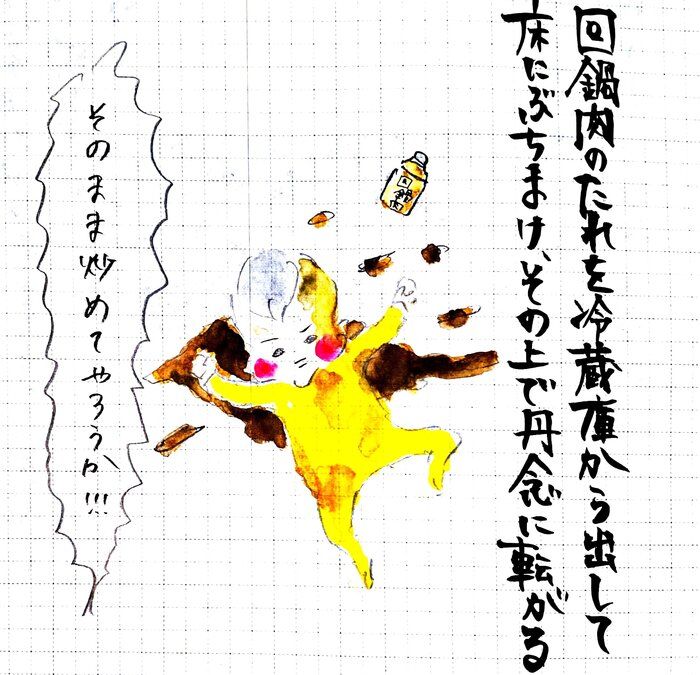 回鍋肉のたれを冷蔵庫から出して
床にぶちまけ、その上で丹念に転がる
回鍋肉
そのまま炒めてやろうか!!!